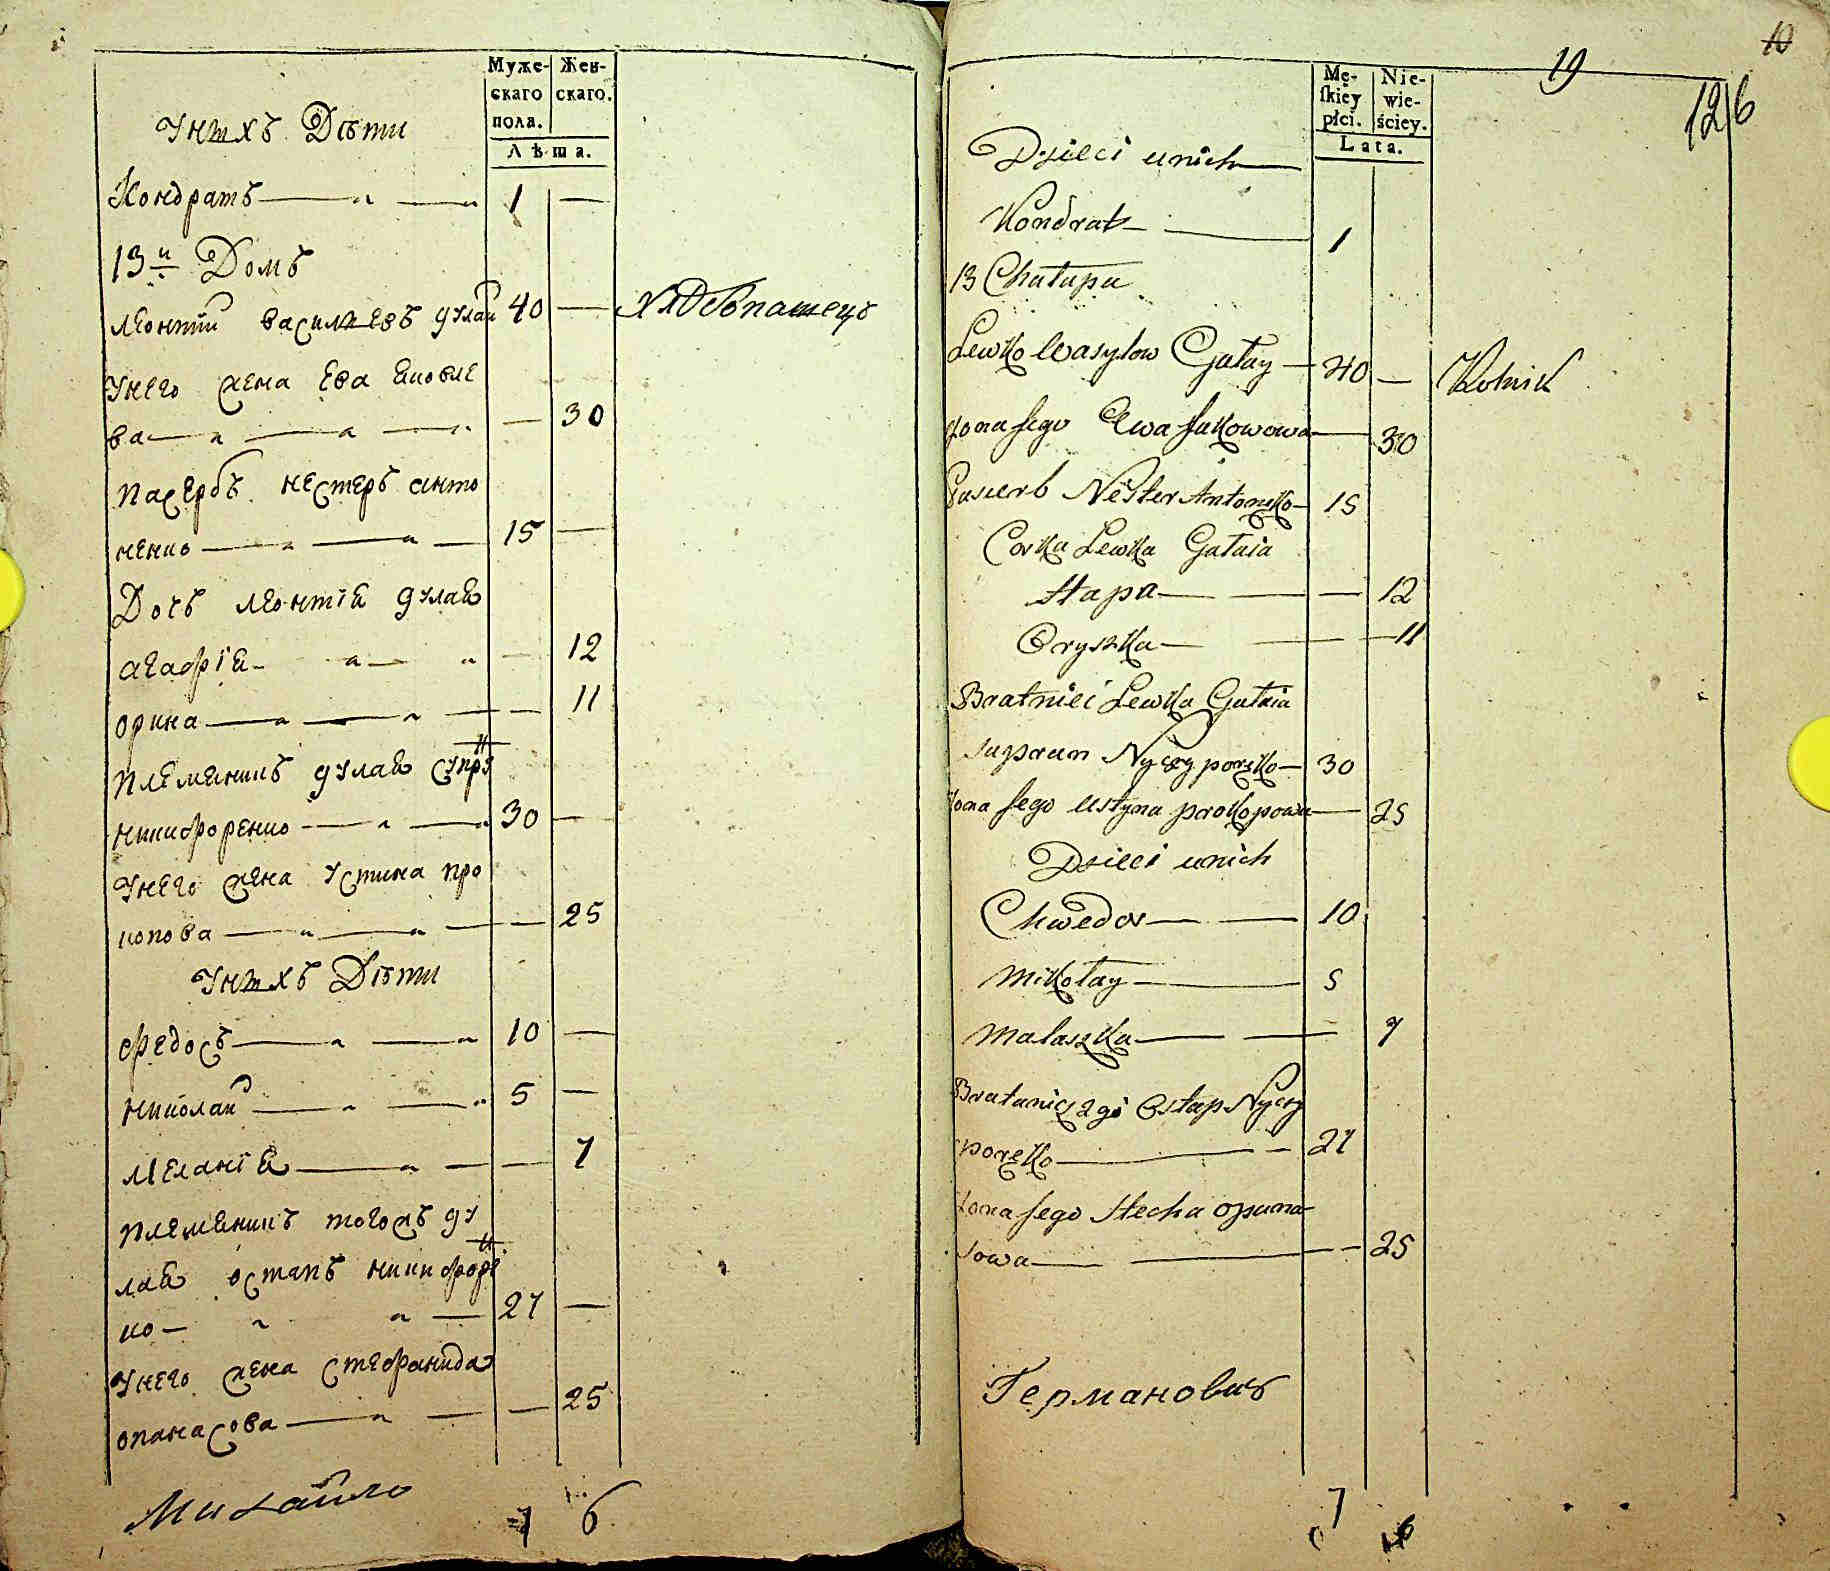 Муже-
скаго
пола.
Жен-
скаго.
Лѣта.
Унихъ Дѣти
Кондратъ 1 —
13й Домъ
леонтий васильевъ гулай 40 — Хлѣбопашецъ
унего жена Ева яковле
ва — 30
пасербъ нестеръ анто
ненко 15 —
Дочь леонтія гулая
агафія — 12
орина — 11
племяникъ гулая супрун
никифоренко 30 —
унего жена устина про
копова — 25
Унихъ Дѣти
федосъ 10 —
николай 5 —
меланія — 7
племяникъ тогожъ гу
лая остапъ никифорен
ко 27 —
унего жена стефанида
опанасова — 25
Михайло
7 6
10
19
126
Mę-
skiey
płci.
Nie-
wie-
ściey.
Lata.
Dzieci unich
Kondrat 1
13 Chałupa
Lewko Wasylow Gułay 40 — Rolnik
żona Jego Ewa Jakowowa — 30
Pasierb Nester Antonęko 15
Corka Lewka Gułaia
Hapa — 12
Oryszka — 11
Bratnieci Lewka Gułaia
Suprun Nyczyporęko 30
żona Jego Ustyna prokopowa — 25
Dzieci unich
Chwedor 10
Mikołay 5
Małaszka — 7
Bratanicz 2gi Ostap Nyczy
poręko 27
żona Jego Stecha opana
sowa — 25
Германовичъ
7 6